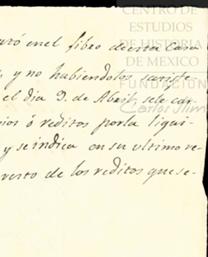 CENTRO DE
ESTUDIOS
DE HISTORIA
DE MEXICO
FUNDACIÓN
Carlos Slim
uró en el libro de esta Casa
y no habiendolos satisfe-
el dia 9. de Abril, se le car-
ios ó reditos por la liqui-
y se indica en su ultimo re-
verto de los reditos que se-